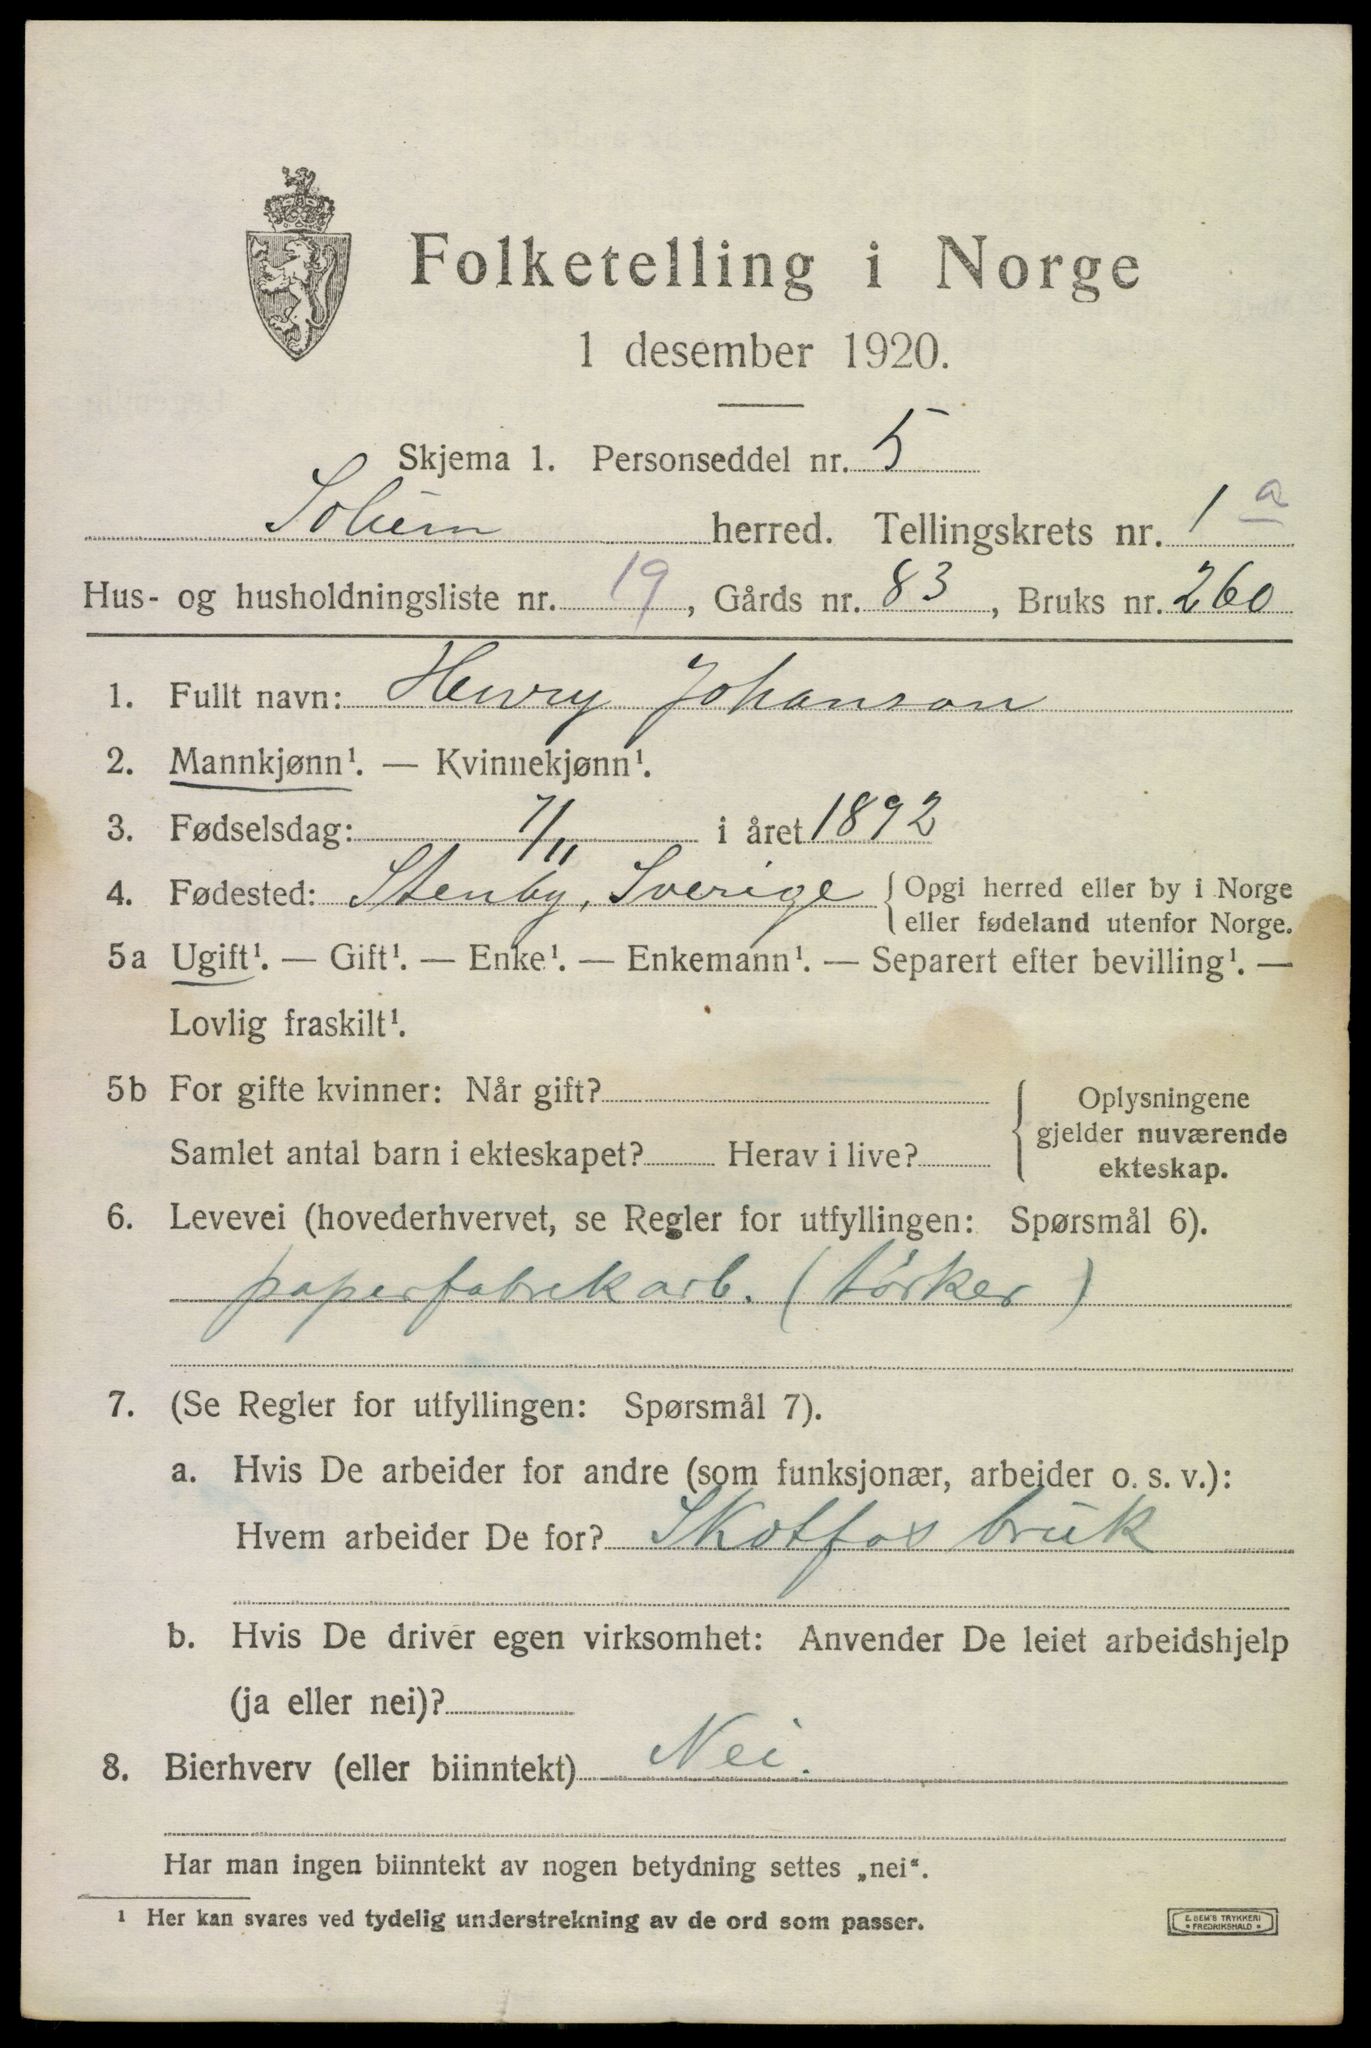 Folketelling i Norge
1 desember 1920.
Skjema 1. Personseddel nr. 5
Solum herred. Tellingskrets nr. 1 a
Hus- og husholdningsliste nr. 19, Gårds nr. 83, Bruks nr. 260
1. Fullt navn: Henry Johanson
2. Mannkjønn¹. — Kvinnekjønn¹.
3. Fødselsdag: 7/11 i året 1892
4. Fødested: Stenby, Sverige { Opgi herred eller by i Norge
eller fødeland utenfor Norge.
5a Ugift¹. — Gift¹. — Enke¹. — Enkemann¹. — Separert efter bevilling¹. —
Lovlig fraskilt¹.
5b For gifte kvinner: Når gift?
Samlet antal barn i ekteskapet? Herav i live?
{ Oplysningene
gjelder nuværende
ekteskap.
6. Levevei (hovederhvervet, se Regler for utfyllingen: Spørsmål 6).
paperfabrikarb. (törker)
7. (Se Regler for utfyllingen: Spørsmål 7).
a. Hvis De arbeider for andre (som funksjonær, arbeider o. s. v.):
Hvem arbeider De for? Skotfos bruk
b. Hvis De driver egen virksomhet: Anvender De leiet arbeidshjelp
(ja eller nei)?
8. Bierhverv (eller biinntekt) Nei.
Har man ingen biinntekt av nogen betydning settes „nei".
¹ Her kan svares ved tydelig understrekning av de ord som passer.
E. SEM'S TRYKKERI
• FREDRIKSHALD •